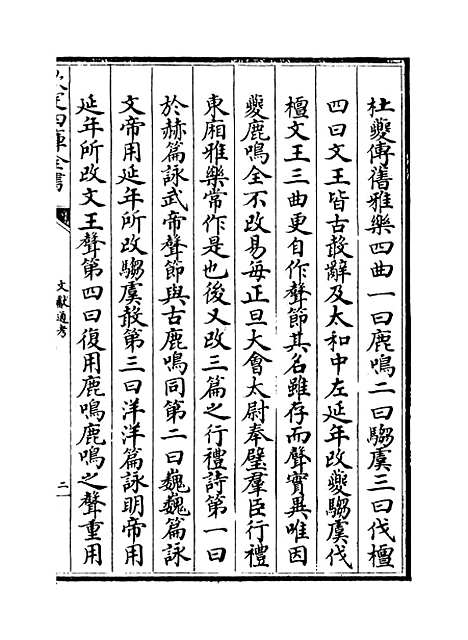 杜夔傳舊雅樂四曲一曰鹿鳴二曰騶虞三曰伐檀
四曰文王皆古聲辭及太和中左延年改夔騶虞伐
檀文王三曲更自作聲節其名雖存而聲實異唯因
夔鹿鳴全不改易每正旦大會太尉奉璧羣臣行禮
東廂雅樂常作是也後又改三篇之行禮詩第一曰
於赫篇詠武帝聲節與古鹿鳴同第二曰巍巍篇詠
文帝用延年所改騶虞聲第三曰洋洋篇詠明帝用
延年所改文王聲第四曰復用鹿鳴鹿鳴之聲重用
欽定四庫全書
文獻通考
二